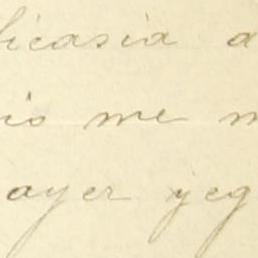 licasia a
is me m
ayer yeg